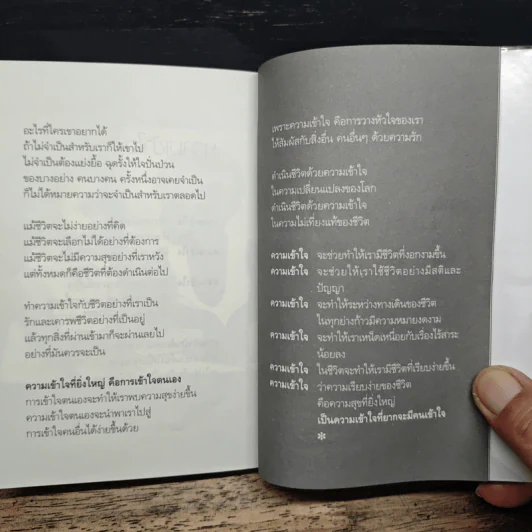 อะไรที่ใครเขาอยากได้
ถ้าไม่จำเป็นสำหรับเราก็ให้เขาไป
ไม่จำเป็นต้องแย่งยื้อ ฉุดรั้งให้ใจปั่นป่วน
ของบางอย่าง คนบางคน ครั้งหนึ่งอาจเคยจำเป็น
ก็ไม่ได้หมายความว่าจะจำเป็นสำหรับเราตลอดไป
แม้ชีวิตจะไม่ง่ายอย่างที่คิด
แม้ชีวิตจะเลือกไม่ได้อย่างที่ต้องการ
แม้ชีวิตจะไม่มีความสุขอย่างที่เราหวัง
แต่ทั้งหมดก็คือชีวิตที่ต้องดำเนินต่อไป
ทำความเข้าใจกับชีวิตอย่างที่เราเป็น
รักและเคารพชีวิตอย่างที่เป็นอยู่
แล้วทุกสิ่งที่ผ่านเข้ามาก็จะผ่านเลยไป
อย่างที่มันควรจะเป็น
ความเข้าใจที่ยิ่งใหญ่ คือการเข้าใจตนเอง
การเข้าใจตนเองจะทำให้เราพบความสุขง่ายขึ้น
ความเข้าใจตนเองจะนำพาเราไปสู่
การเข้าใจคนอื่นได้ง่ายขึ้นด้วย
เพราะความเข้าใจ คือการวางหัวใจของเรา
ให้สัมผัสกับสิ่งอื่น คนอื่นๆ ด้วยความรัก
ดำเนินชีวิตด้วยความเข้าใจ
ในความเปลี่ยนแปลงของโลก
ดำเนินชีวิตด้วยความเข้าใจ
ในความไม่เที่ยงแท้ของชีวิต
ความเข้าใจ จะช่วยทำให้เรามีชีวิตที่งอกงามขึ้น
ความเข้าใจ จะช่วยให้เราใช้ชีวิตอย่างมีสติและ
ปัญญา
ความเข้าใจ จะทำให้ระหว่างทางเดินของชีวิต
ในทุกย่างก้าวมีความหมายงดงาม
ความเข้าใจ จะทำให้เราเหน็ดเหนื่อยกับเรื่องไร้สาระ
น้อยลง
ความเข้าใจ ในชีวิตจะทำให้เรามีชีวิตที่เรียบง่ายขึ้น
ความเข้าใจ ว่าความเรียบง่ายของชีวิต
คือความสุขที่ยิ่งใหญ่
เป็นความเข้าใจที่ยากจะมีคนเข้าใจ
*